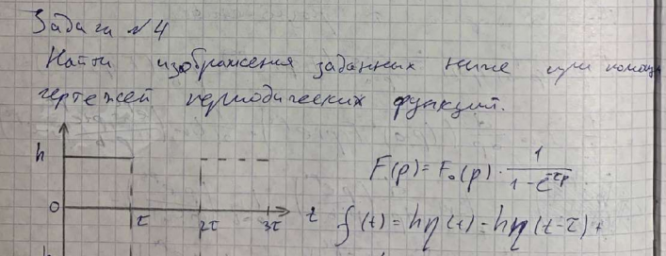 Задача №4
Найти изображения заданных ниже при помощи
чертежей периодических функций.
h
F(p) = F₀(p) · 1/(1 - e^-τp)
0 τ 2τ 3τ t
f(t) = hη(t) - hη(t-τ) +
h